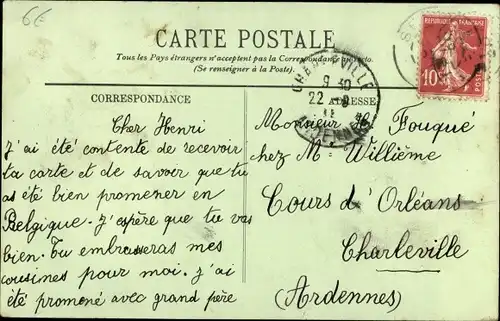 6€
CARTE POSTALE
Tous les Pays étrangers n'acceptent pas la Correspondance au recto.
(Se renseigner à la Poste).
CORRESPONDANCE
Cher Henri
J'ai été contente de recevoir
ta carte et de savoir que tu
as été bien promener en
Belgique. j'espère que tu vas
bien. Tu embrasseras mes
cousines pour moi. J'ai
été promené avec grand père
ADRESSE
Monsieur Fouqué
chez M. Willième
Cours d'Orléans
Charleville
(Ardennes)
CHARLEVILLE
9 30
22
ARDENNES
REPUBLIQUE FRANÇAISE
10
POSTES